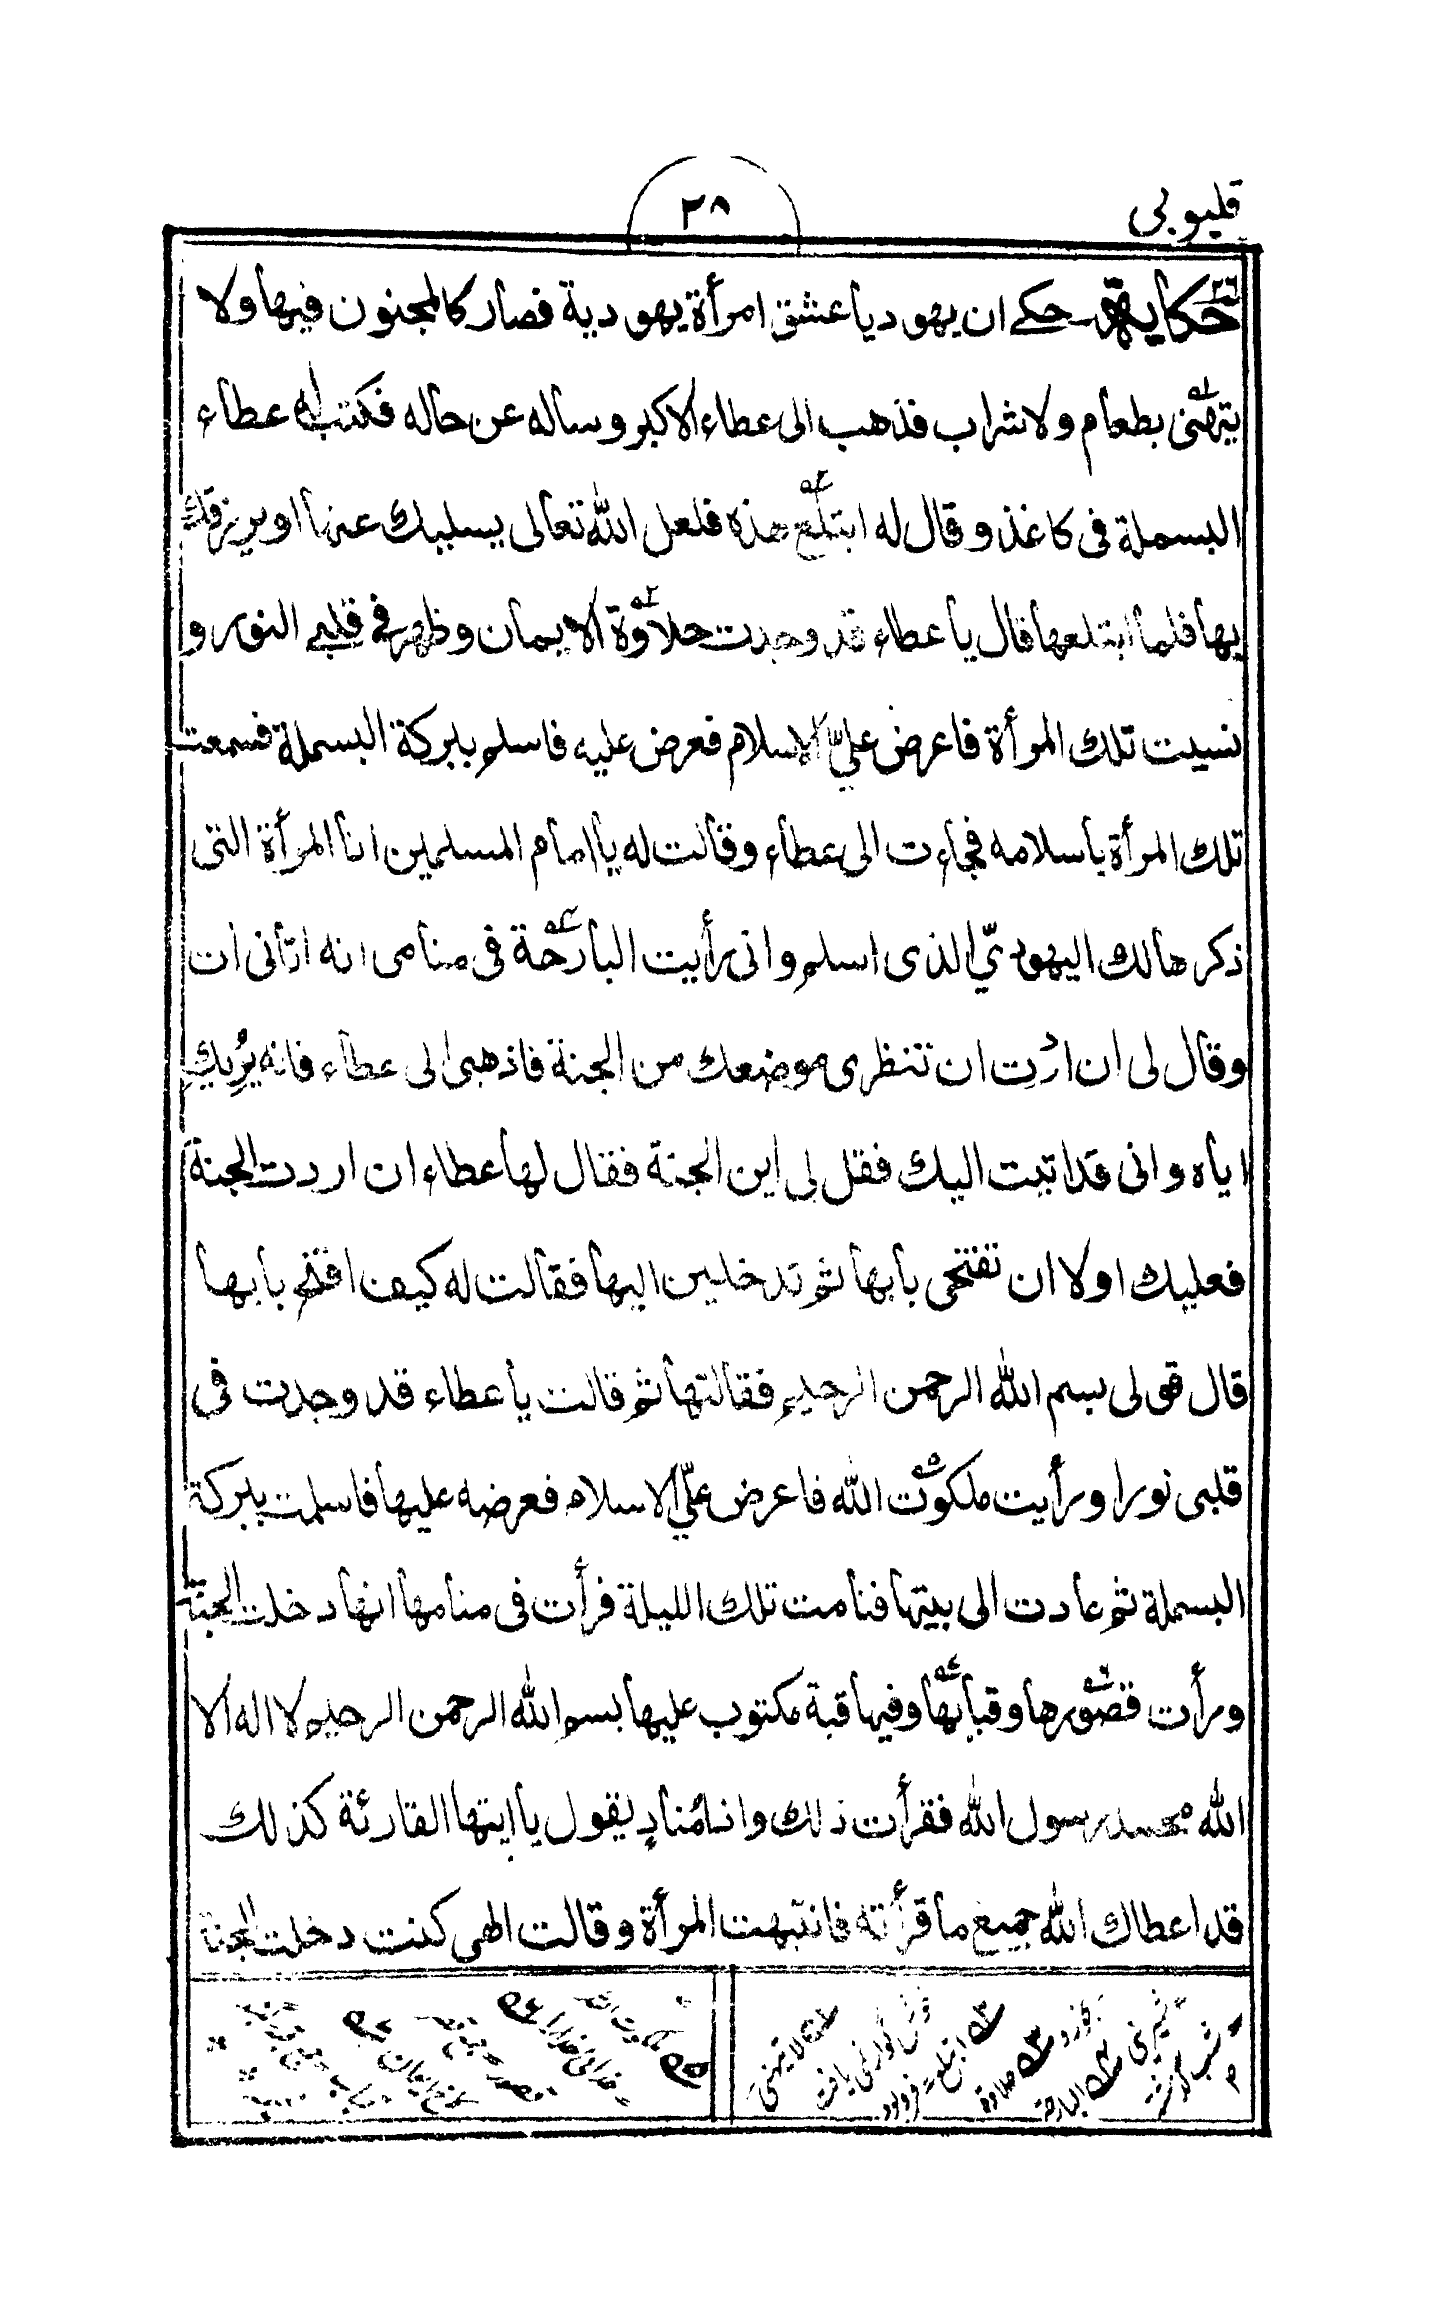 قليوبى
٢٨
حكاية ٢٦ حكے ان يهوديا عشق امرأة يهودية فصار كالمجنون فيها ولا
يتهنى بطعام ولا شراب فذهب الى عطاء الاكبر وساله عن حاله فكتب له عطاء
البسملة فى كاغذ وقال له ابتلع هذه فلعل الله تعالى يسليك عنها او يرزقك
بها فلما ابتلعها قال يا عطاء قد وجدت حلاوة الايمان وظهر فى قلبے النور و
نسيت تلك المرأة فاعرض علىّ الاسلام فعرض عليه فاسلم ببركة البسملة فسمعت
تلك المرأة باسلامه فجاءت الى عطاء وقالت له يا امام المسلمين انا المرأة التى
ذكرها لك اليهودىّ الذى اسلم وانى رأيت البارحة فى منامى انه اتانى ات
وقال لى ان اردت ان تنظرى موضعك من الجنة فاذهبى الى عطاء فانه يُرِيكِ
اياه وانى قد اتيت اليك فقل لى اين الجنة فقال لها عطاء ان اردت الجنة
فعليك اولا ان تفتحى بابها ثم تدخلين اليها فقالت له كيف افتح بابها
قال قولى بسم الله الرحمن الرحيم فقالتها ثم قالت يا عطاء قد وجدت فى
قلبى نورا ورأيت ملكوت الله فاعرض علىّ الاسلام فعرضه عليها فاسلمت ببركة
البسملة ثم عادت الى بيتها فنامت تلك الليلة فرأت فى منامها انها دخلت الجنة
ورأت قصورها وقبابها وفيها قبة مكتوب عليها بسم الله الرحمن الرحيم لا اله الا
الله محمد رسول الله فقرأت ذلك واذا مُنادٍ يقول يا ايتها القارئة كذلك
قد اعطاك الله جميع ما قرأته فانتبهت المرأة وقالت الهى كنت دخلت الجنة